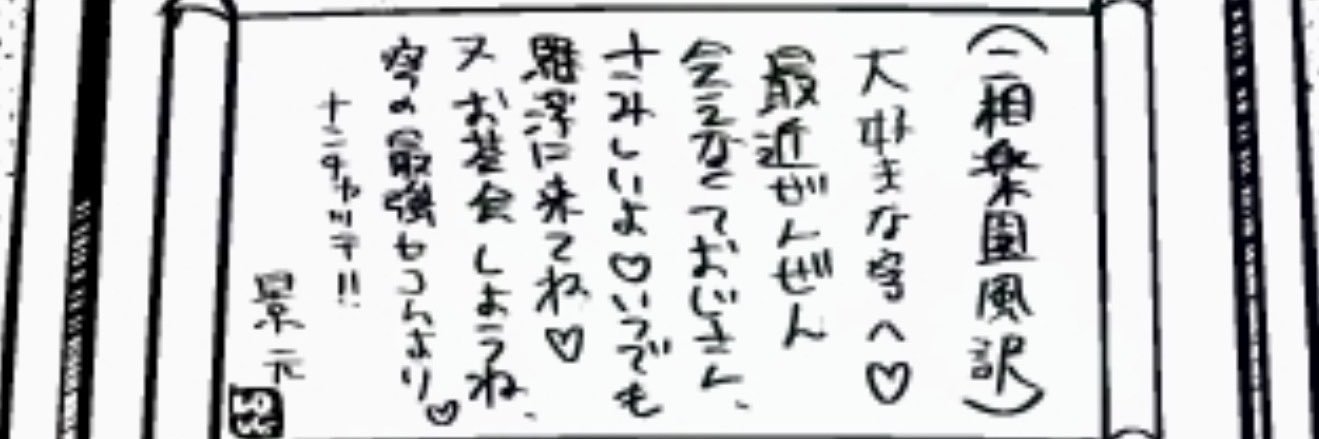 (二相楽園風訳)
大好きな穹へ♡
最近ぜんぜん
会えなくておじさん、
さみしいよ♡いつでも
羅浮に来てね♡
又お茶会しようね、
穹の最強もふもふより♡
ナニヲヤッテ!!
景元